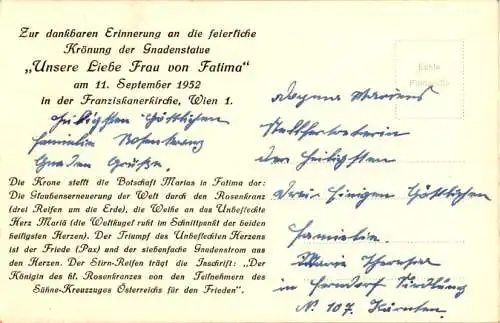 Zur dankbaren Erinnerung an die feierliche
Krönung der Gnadenstatue
„Unsere Liebe Frau von Fatima“
am 11. September 1952
in der Franziskanerkirche, Wien 1.
Heiligsten Göttlichen
Familie Rosenkranz
Gnaden Grüße.
Die Krone stellt die Botschaft Marias in Fatima dar:
Die Glaubenserneuerung der Welt durch den Rosenkranz
(drei Reifen um die Erde), die Weihe an das Unbefleckte
Herz Mariä (die Weltkugel ruht im Schnittpunkt der beiden
heiligsten Herzen). Der Triumpf des Unbefleckten Herzens
ist der Friede (Pax) und der siebenfache Gnadenstrom aus
den Herzen. Der Stirn-Reifen trägt die Inschrift: „Der
Königin des hl. Rosenkranzes von den Teilnehmern des
Sühne-Kreuzzuges Österreichs für den Frieden“.
Echte
Mariens
Stellvertreterin
der Heiligsten
Drei Einigen Göttlichen
Familie
Maria Theresia
in Ferndorf Siedlung
N. 107. Kärnten.